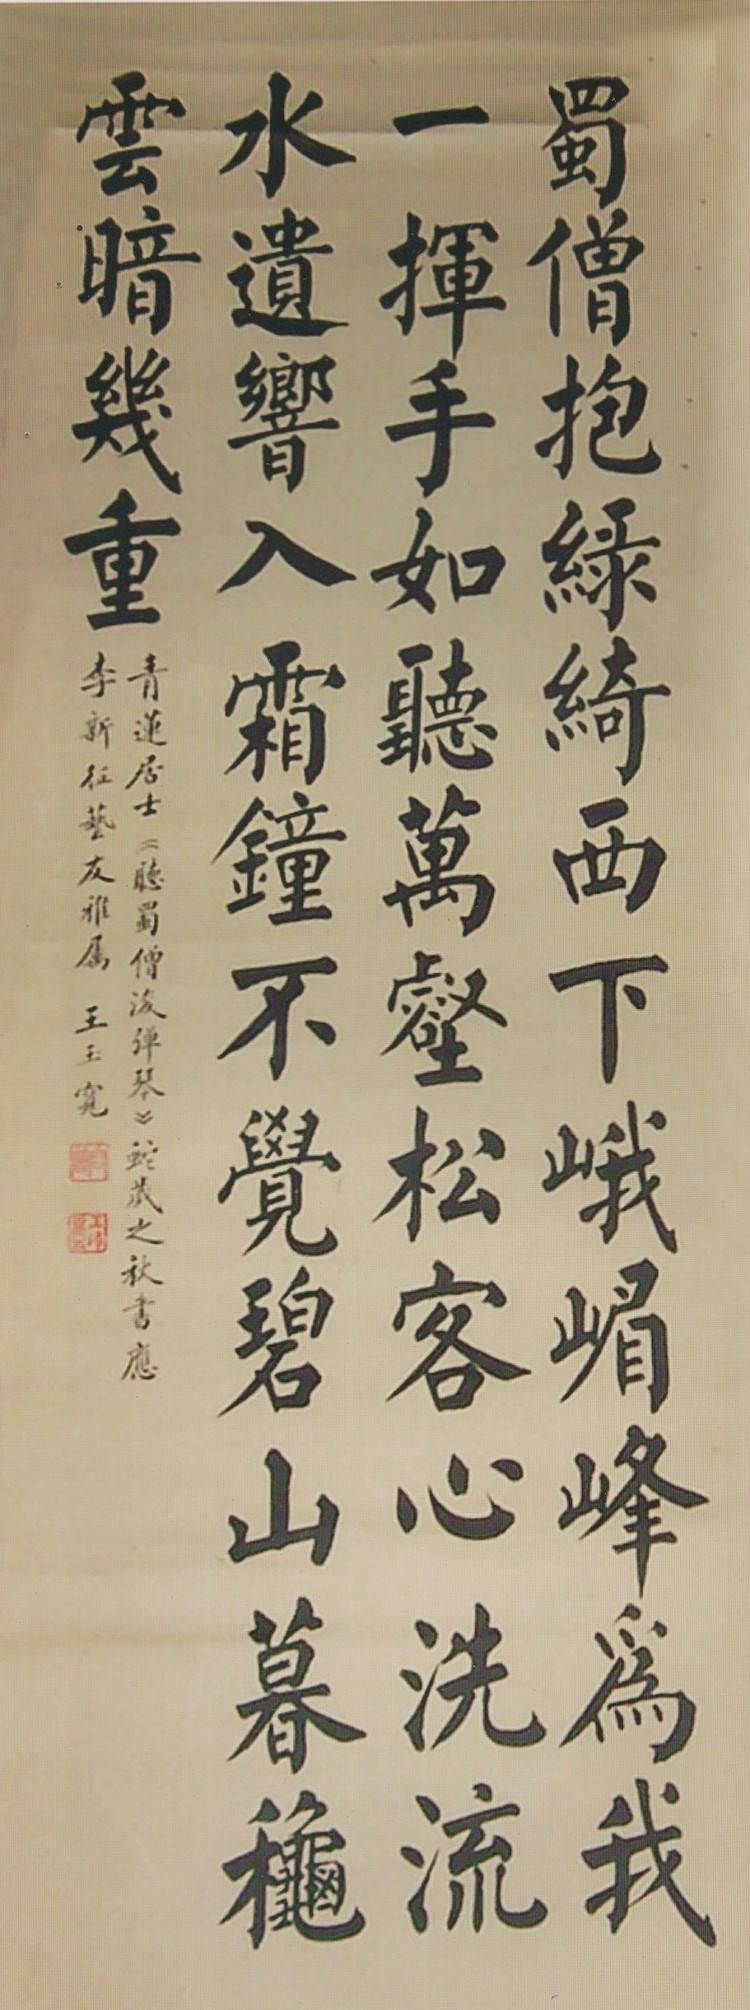 蜀僧抱綠綺西下峨嵋峰爲我
一揮手如聽萬壑松客心洗流
水遺響入霜鐘不覺碧山暮龝
雲暗幾重
青蓮居士《聽蜀僧浚弹琴》蛇歲之秋書應
李新征藝友雅属 王玉寬